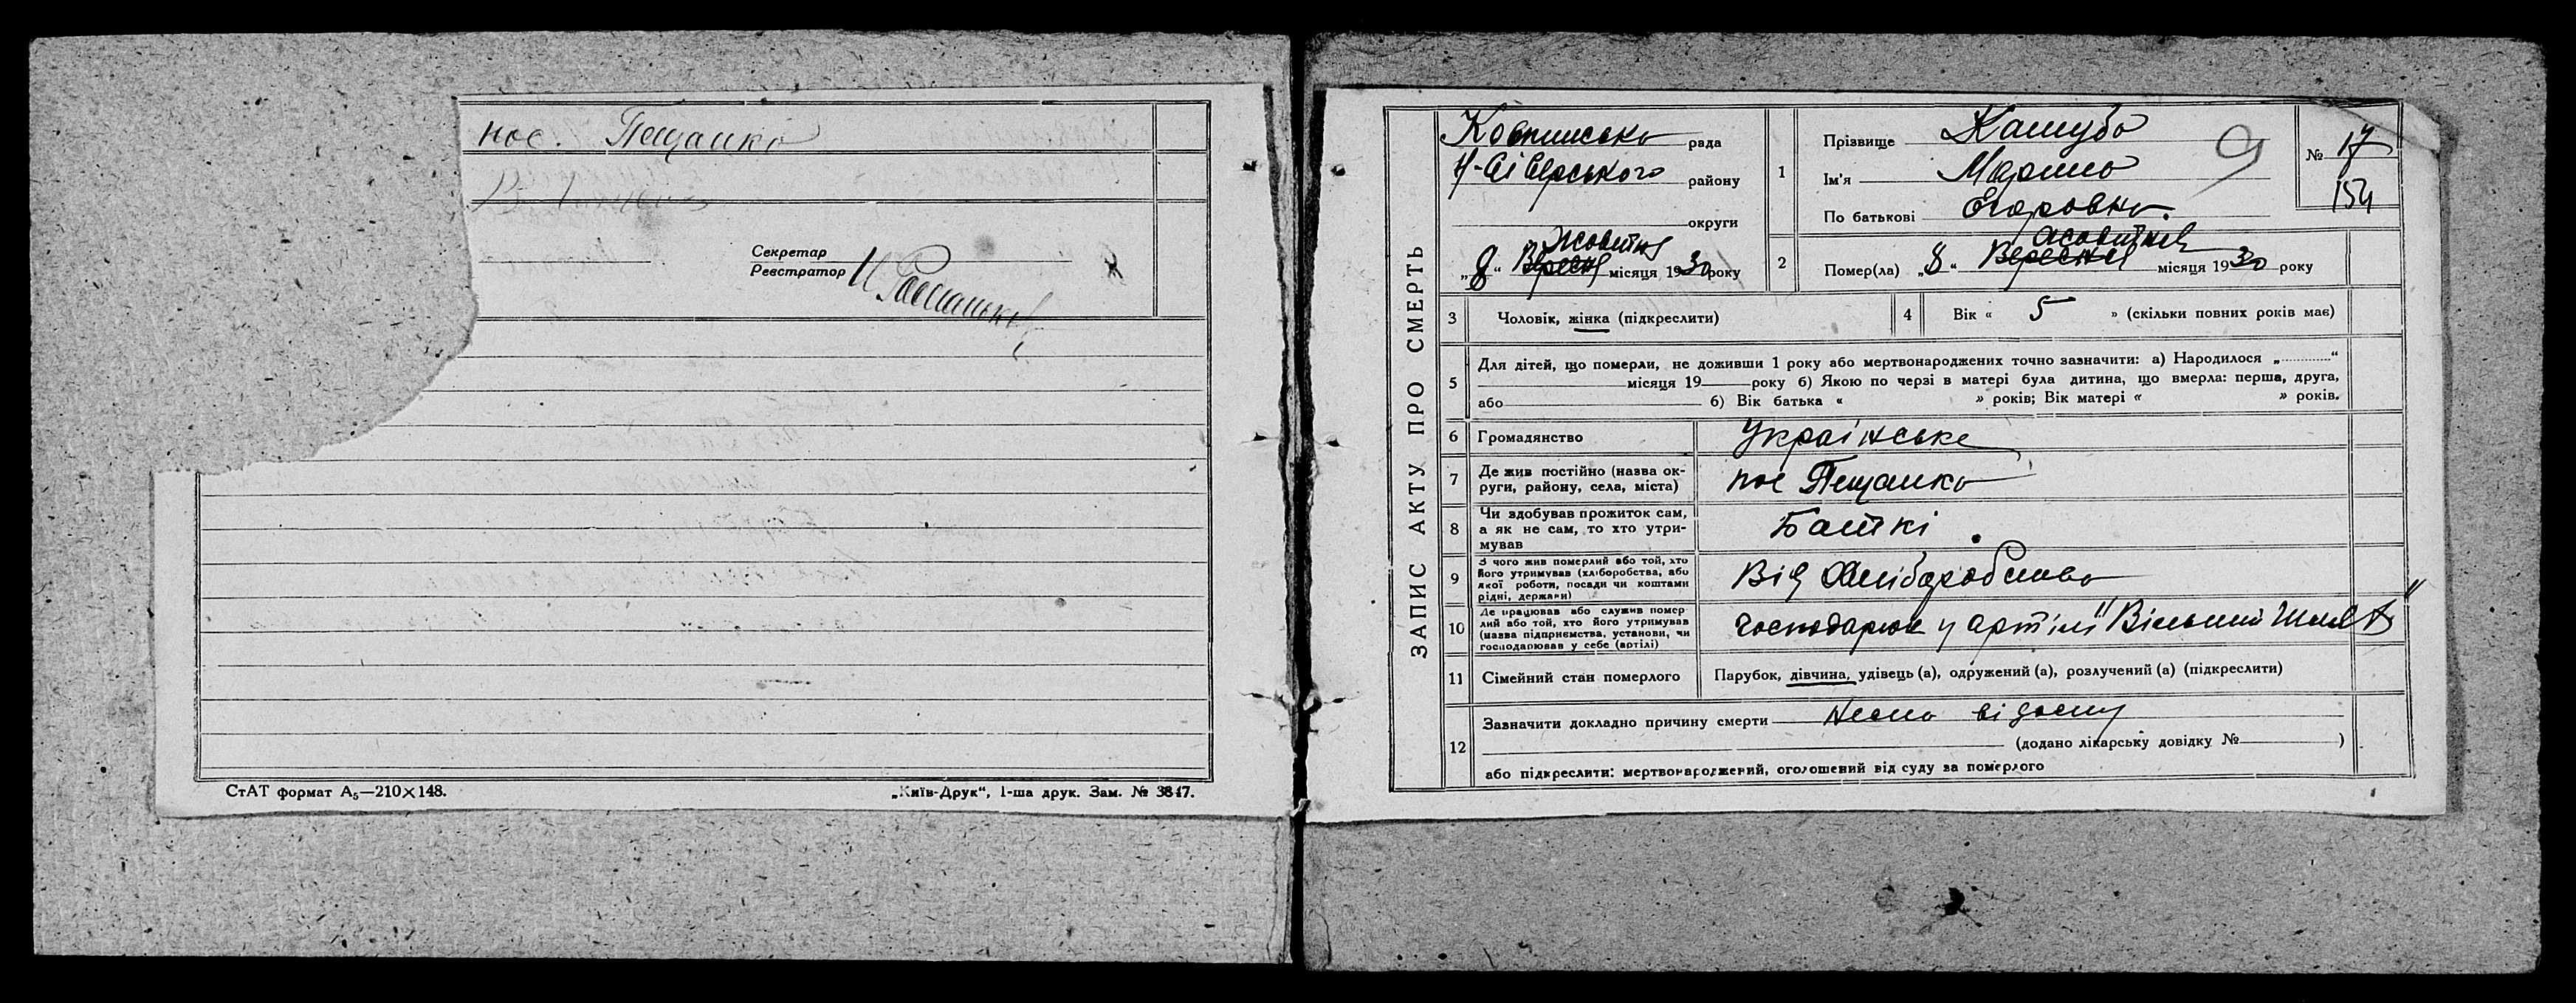 пос. Пещанка
Секретар
Реєстратор
СтАТ формат А₅—210×148.
„Київ-Друк“, 1-ша друк. Зам. № 3847.
ЗАПИС АКТУ ПРО СМЕРТЬ
Ковпинська рада
Н-Сіверського району
округи
Жовтня
„8“ Вересня місяця 1930 року
1
Прізвище Кашуба
Ім'я Марина
По батькові Егоровна.
9
№ 17
154
2
Жовтня
Помер(ла) „8“ Вересня місяця 1930 року
3 Чоловік, жінка (підкреслити)
4 Вік « 5 » (скільки повних років має)
5 Для дітей, що померли, не доживши 1 року або мертвонароджених точно зазначити: а) Народилося „ “
місяця 19 року б) Якою по черзі в матері була дитина, що вмерла: перша, друга,
або б) Вік батька « » років; Вік матері « » років.
6 Громадянство Українське
7 Де жив постійно (назва ок-
руги, району, села, міста) пос Пещанка
8 Чи здобував прожиток сам,
а як не сам, то хто утри-
мував Баткі
9 З чого жив померлий або той, хто
його утримував (хліборобства, або
якої роботи, посади чи коштами
рідні, держави) Від Хліборобства
10 Де працював або служив помер
лий або той, хто його утримував
(назва підприємства, установи, чи
господарював у себе (артілі) господарює у артілі "Вільний Шлях"
11 Сімейний стан померлого Парубок, дівчина, удівець (а), одружений (а), розлучений (а) (підкреслити)
12 Зазначити докладно причину смерти
(додано лікарську довідку № )
або підкреслити: мертвонароджений, оголошений від суду за померлого